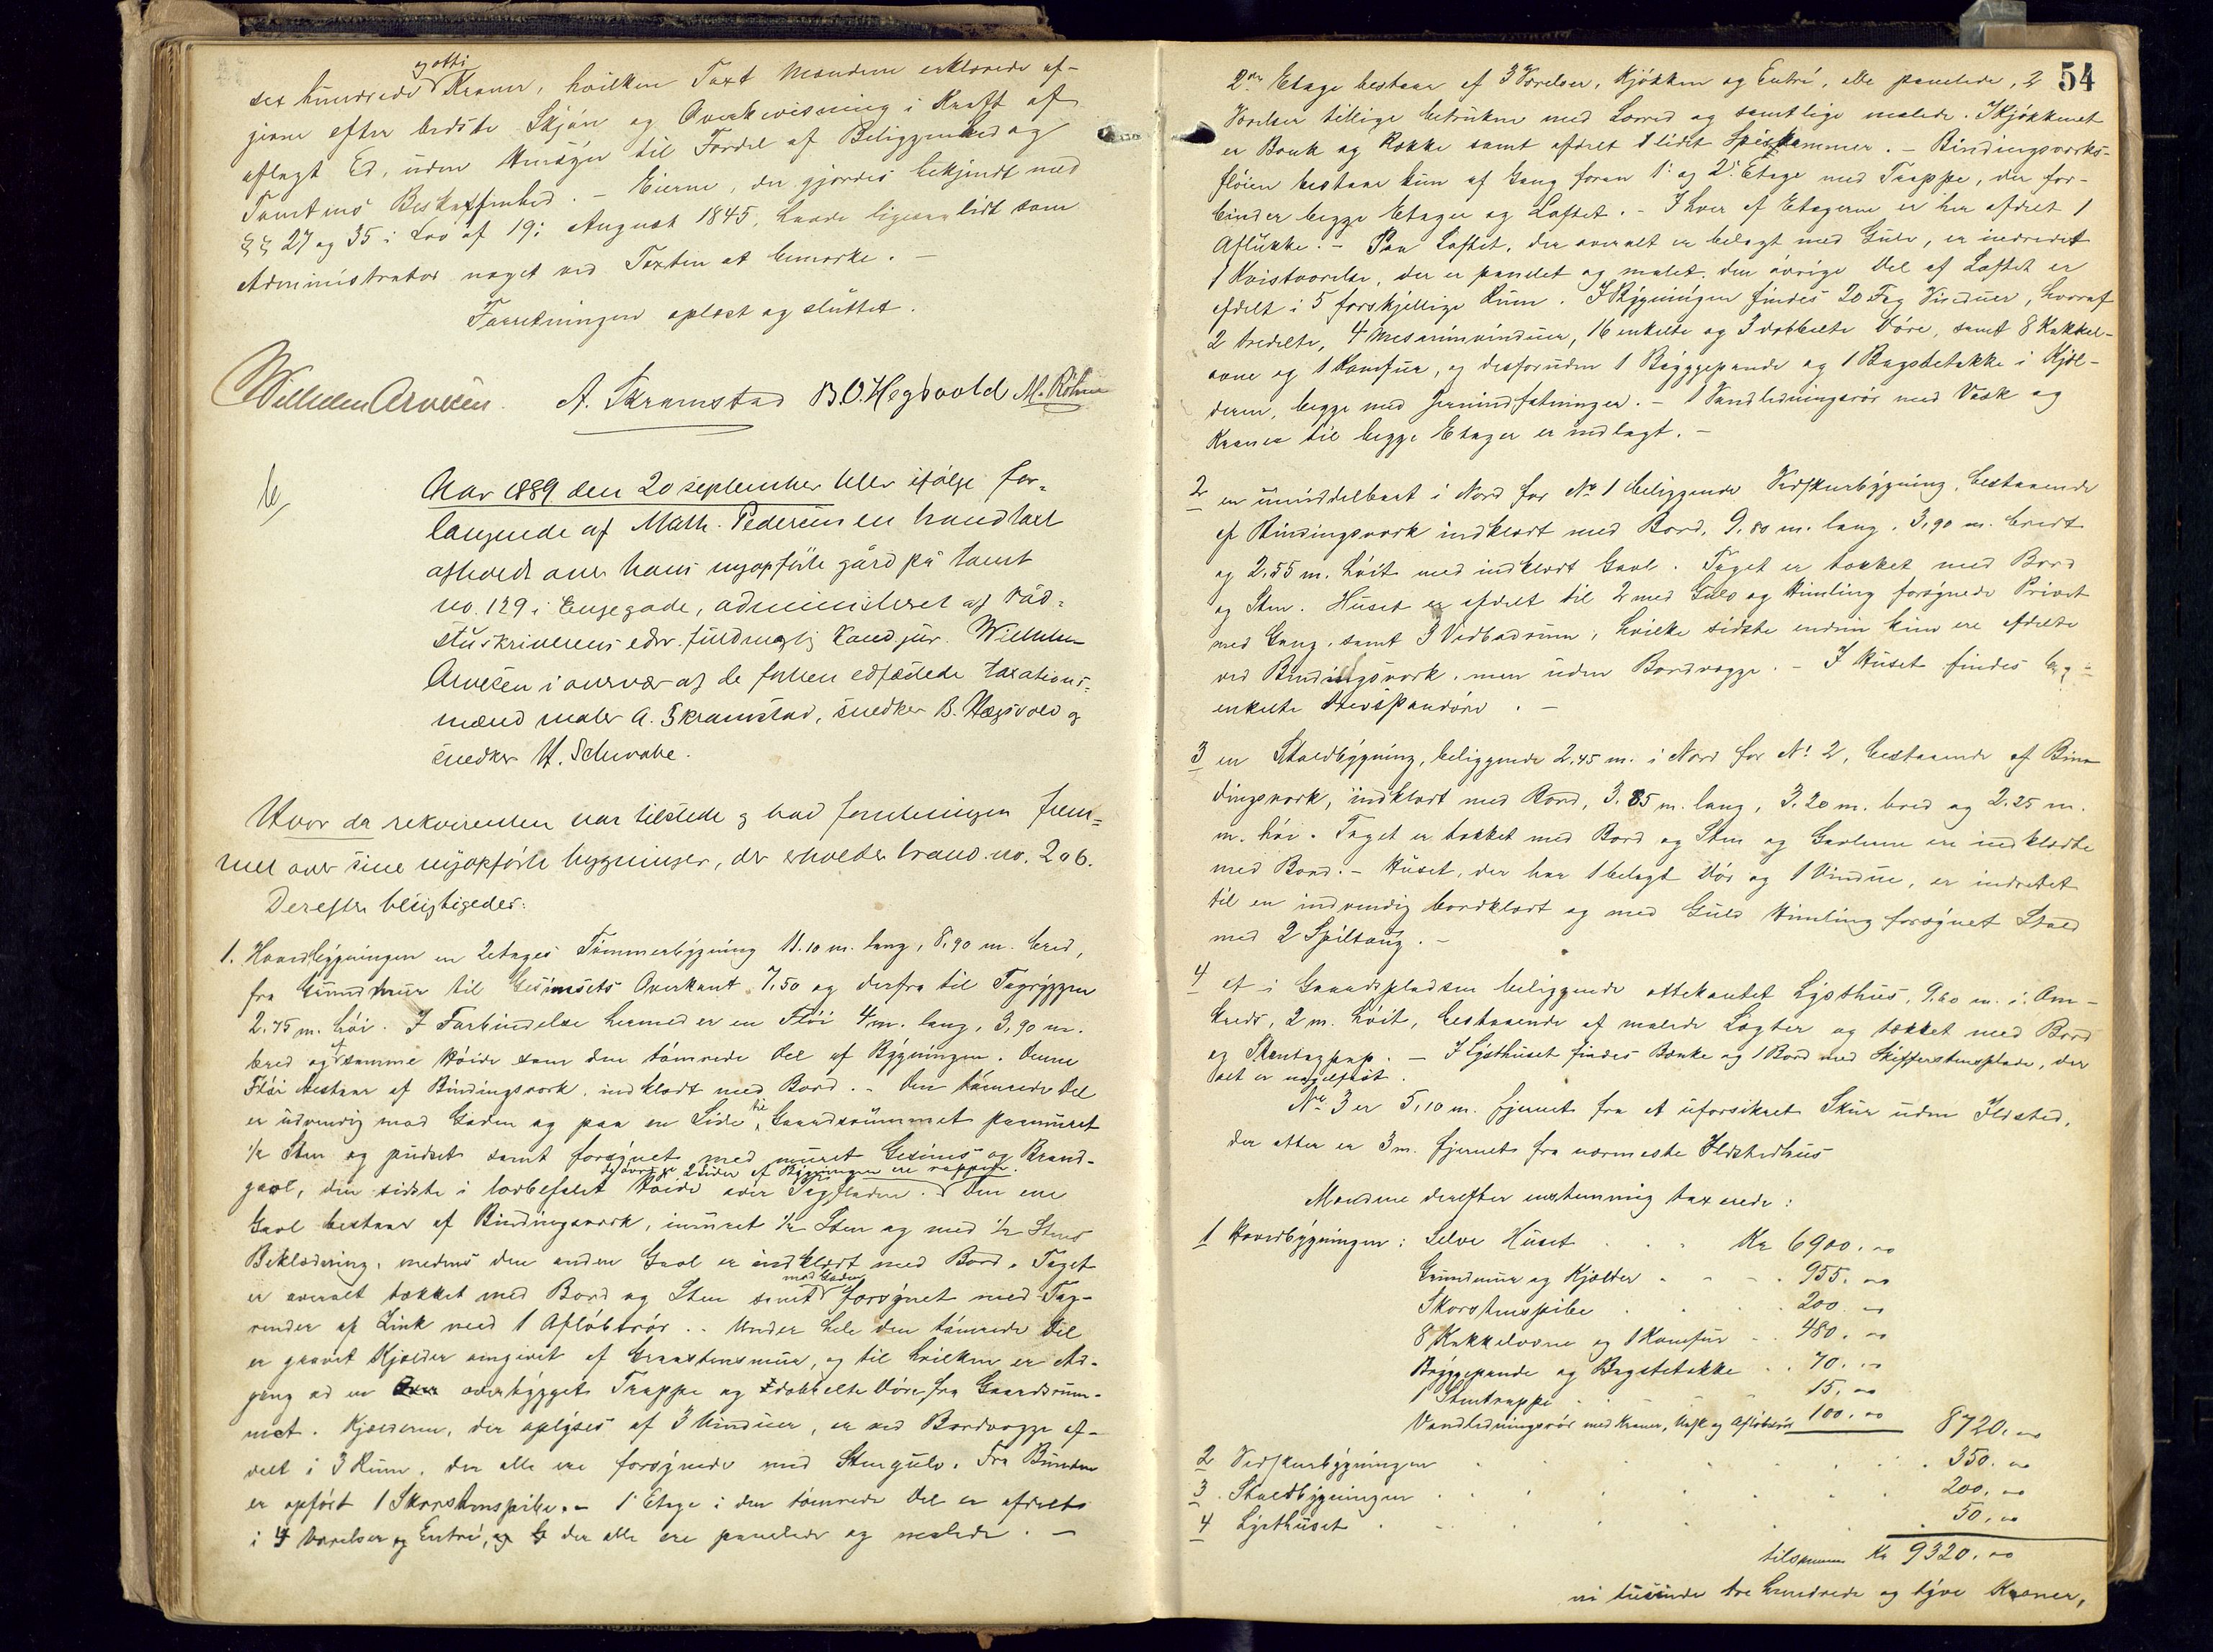 og otti
sex hundrede Kroner, hvilken Taxt Mændene erklærede af-
givne efter bedste Skjøn og Overbevisning i Kraft af
aflagt Ed, uden Hensyn til Fordel af Beliggenhed og
Tomtens Beskaffenhed. - Eieren, der gjordes bekjendt med
§§ 27 og 35 i Lov af 19: August 1845, havde ligesaalidt som
Administrator noget ved Taxten at bemærke. -
Forretningen oplæst og sluttet.
Wilhelm Arvesen. A. Skramstad B.O. Hegsvold M. Röhne
Aar 1889 den 20 september blev ifølge for-
langende af Math. Pedersen en brandtaxt
afholdt over hans nyopførte gård på tomt
no. 129 i Engegade, administreret af råd-
stuskriverens edsv. fuldmægtig Cand. jur. Wilhelm
Arvesen i overvær af de faste edfæstede taxations-
mænd maler A. Skramstad, snedker B. Hægsvold og
snedker H. Schwabe.
Hvor da rekvirenten var tilstede og bad forretningen frem-
met over sine nyopførte bygninger, der erholder brand. no. 206.
Derefter besigtigedes:
1. Hovedbygningen en 2etages Tømmerbygning 11.10 m. lang, 8,90 m. bred,
fra Grundmur til Gesimsets Overkant 7,50 og derfra til Tagryggen
2.75 m. høi. I Forbindelse hermed er en Fløi 4 m. lang, 3,90 m.
bred og af samme Høide som den tømrede Del af Bygningen. Denne
Fløi bestaar af Bindingsværk, indklædt med Bord. - Den tømrede Del
er udvendig mod Gaden og paa en Side til Gaardsrummet paamuret
½ Sten og pudset samt forsynet med muret Gesims og Brand-
de øvrige 2 Sider af Bygningen ere rappede.
gavl, den sidste i lovbefalet Høide over Tagfladen. Den ene
Gavl bestaar af Bindingsværk, inmuret ½ Sten og med ½ Stens
Beklædning, medens den anden Gavl er indklædt med Bord. Taget
mod Gaden
er overalt tækket med Bord og Sten samt forsynet med Tag-
render af Zink med 1 Afløbsrør. - Under hele den tømrede Del
er gravet Kjælder omgivet af Graastensmur, og til hvilken er Ad-
gang ad en overbygget Trappe og dobbelte Døre fra Gaardsrum-
met. Kjælderen, der oplyses af 3 Vinduer, er ved Bordvægge af-
delt i 3 Rum, der alle ere forsynede med Stengulv. Fra Bunden
er opført 1 Skorstenspibe. - 1' Etage i den tømrede Del er afdelt
i 4 Værelser og Entré, der alle ere panelede og malede. -
54
2den Etage bestaar af 3 Værelser, Kjøkken og Entré, alle panelede, 2
Værelser tillige betrukne med Lærred og samtlige malede. I Kjøkkenet
er Bænk og Række samt afdelt 1 lidet Spiskammer. - Bindingsværks-
fløien bestaar kun af Gang foran 1' og 2' Etage med Trappe, der for-
binder begge Etager og Loftet. - I hver af Etagerne er her afdelt 1
Aflukke. - Paa Loftet, der overalt er belagt med Gulv, er indredet
1 Kvistværelse, der er panelet og malet; den øvrige Del af Loftet er
afdelt i 5 forskjellige Rum. I Bygningen findes 20 Fag Vinduer, hvoraf
2 tredelte, 4 Mesaninvinduer, 16 enkelte og 3 dobbelte Døre, samt 8 Kakkel-
ovne og 1 Komfur, og desforuden 1 Bryggepande og 1 Bagstetakke i Kjæl-
deren, begge med Jernindfatninger. - 1 Vandledningsrør med Vask og
Kraner til begge Etager er indlagt. -
2 en umiddelbart i Nord for No 1 beliggende Vedskurbygning, bestaaende
af Bindingsværk indklædt med Bord, 9,80 m. lang, 3,90 m. bredt
og 2,55 m. høit med indklædt Gavl. Taget er tækket med Bord
og Sten. Huset er afdelt til 2 med Gulv og Himling forsynede Privet
med Gang, samt 3 Vedbodrum, hvilke sidste endnu kun ere afdelte
ved Bindingsværk, men uden Bordvægge. - I Huset findes
enkelte
3 en Staldbygning, beliggende 2,45 m. i Nord for No 2, bestaaende af Bin-
dingsværk, indklædt med Bord, 3.85 m. lang, 3.20 m. bred og 2.25 m.
m. høi. Taget er tækket med Bord og Sten og Gavlene ere indklædte
med Bord. - Huset, der har 1 belagt Dør og 1 Vindue, er indredet
til en indvendig bordklædt og med Gulv Himling forsynet Stald
med 2 Spiltoug. -
4 et i Gaardspladsen beliggende ottekantet Lysthus, 9.60 m. i Om-
kreds, 2 m. høit, bestaaende af malede Lægter og tækket med Bord
og Stentagpap. - I Lysthuset findes Bænke og 1 Bord med Skifferstensplade, der
alt er nagelfast.
No 3 er 5,10 m. fjernet fra et uforsikret Skur uden Ildsted,
der atter er 3 m. fjernet fra nærmeste Ildstedhus
Mændene derefter enstemmig taxerede:
1 Hovedbygningen: Selve Huset . . . Kr 6900. 00
Grundmur og Kjælder . . . 955. 00
Skorstenspibe . . . 200. 00
8 Kakkelovne og 1 Komfur . . 480. 00
Bryggepande og Bagstetakke . . 70. 00
1 Stentrappe . . . 15. 00
Vandledningsrør med Kraner, Vask og Afløbsrør 100. 00 8720. 00
2 Vedskurbygningen . . . 350. 00
3. Staldbygningen . . . 200. 00
4 Lysthuset . . . 50. 00
tilsammen Kr 9320. 00
ni tusinde tre hundrede og tyve Kroner,